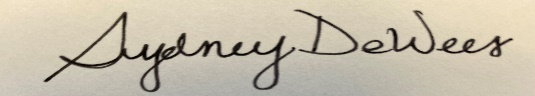 Sydney DeWees